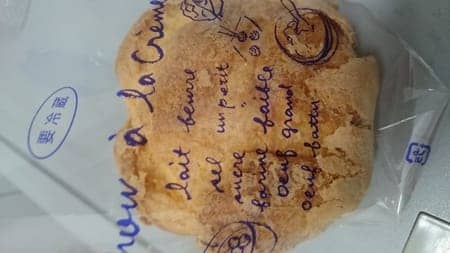 hou à la Crème
lait beurre
sel un peu
sucre
farine faible
oeuf grand
oeuf battu
要冷蔵
プラ